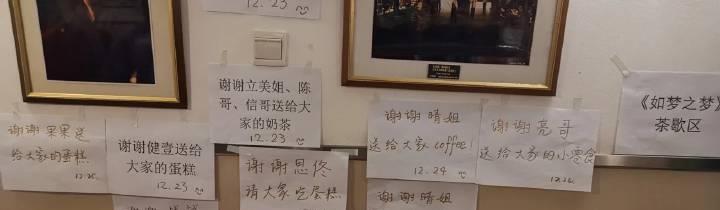 12.23
谢谢果果送
给大家的蛋糕
12.25
谢谢健壹送给
大家的蛋糕
12.23
谢谢立美姐、陈
哥、信哥送给大
家的奶茶
12.23
谢谢思佟
请大家吃蛋糕
谢谢晴姐
送给大家coffee!
12.24
谢谢晴姐
谢谢亮哥
送给大家的小零食
12.24
《如梦之梦》
茶歇区